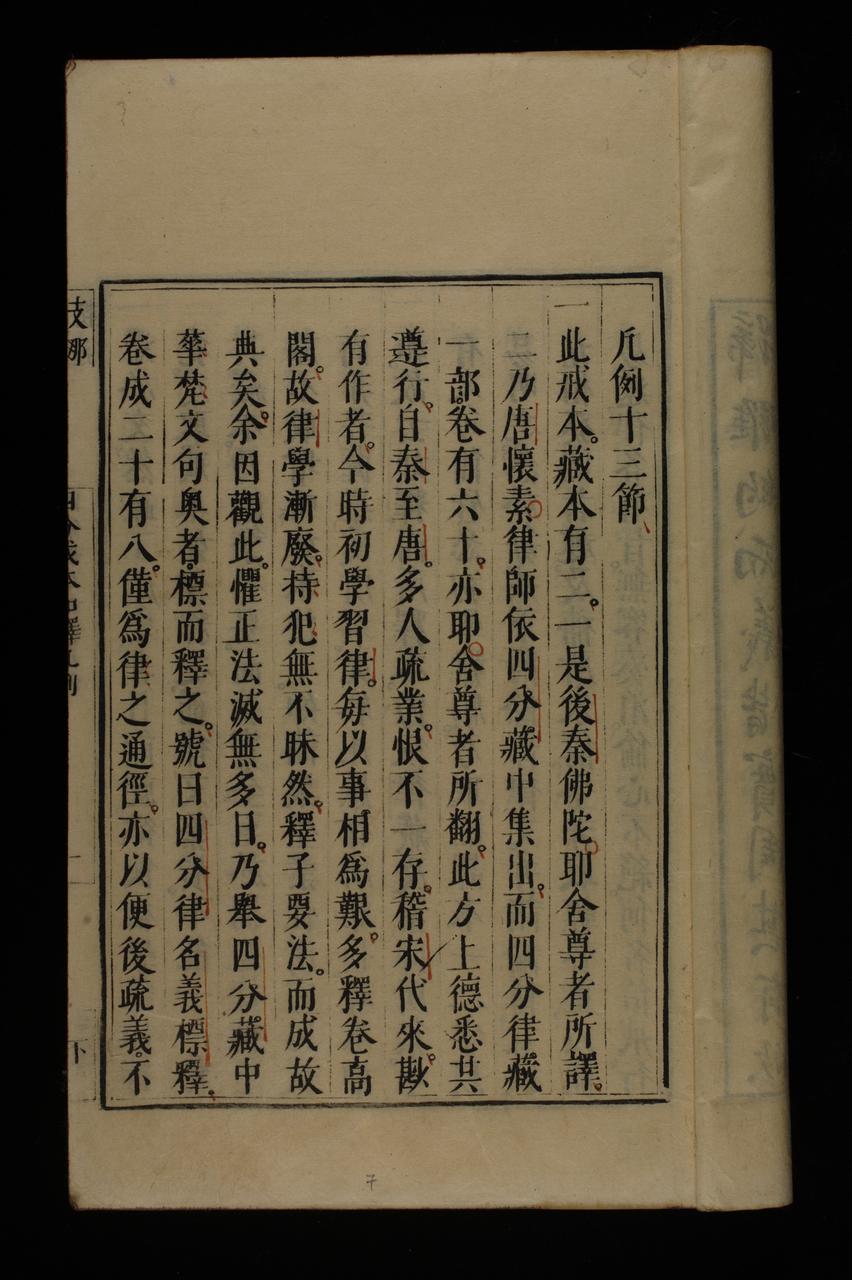 凡例十三節
一此戒本。藏本有二。一是後秦佛陀耶舍尊者所譯。
二乃唐懷素律師依四分藏中集出。而四分律藏
一部。卷有六十。亦耶舍尊者所翻。此方上德悉共
遵行。自秦至唐。多人疏業。恨不一存。稽宋代來。尠
有作者。今時初學習律。每以事相爲艱。多釋卷高
閣。故律學漸廢。持犯無不昧然。釋子要法。而成故
典矣。余因觀此。懼正法滅無多日。乃舉四分藏中
華梵文句奧者。標而釋之。號曰四分律名義標釋。
卷成二十有八。僅爲律之通徑。亦以便後疏義。不
支那
四分戒本如釋凡例
一
下
7